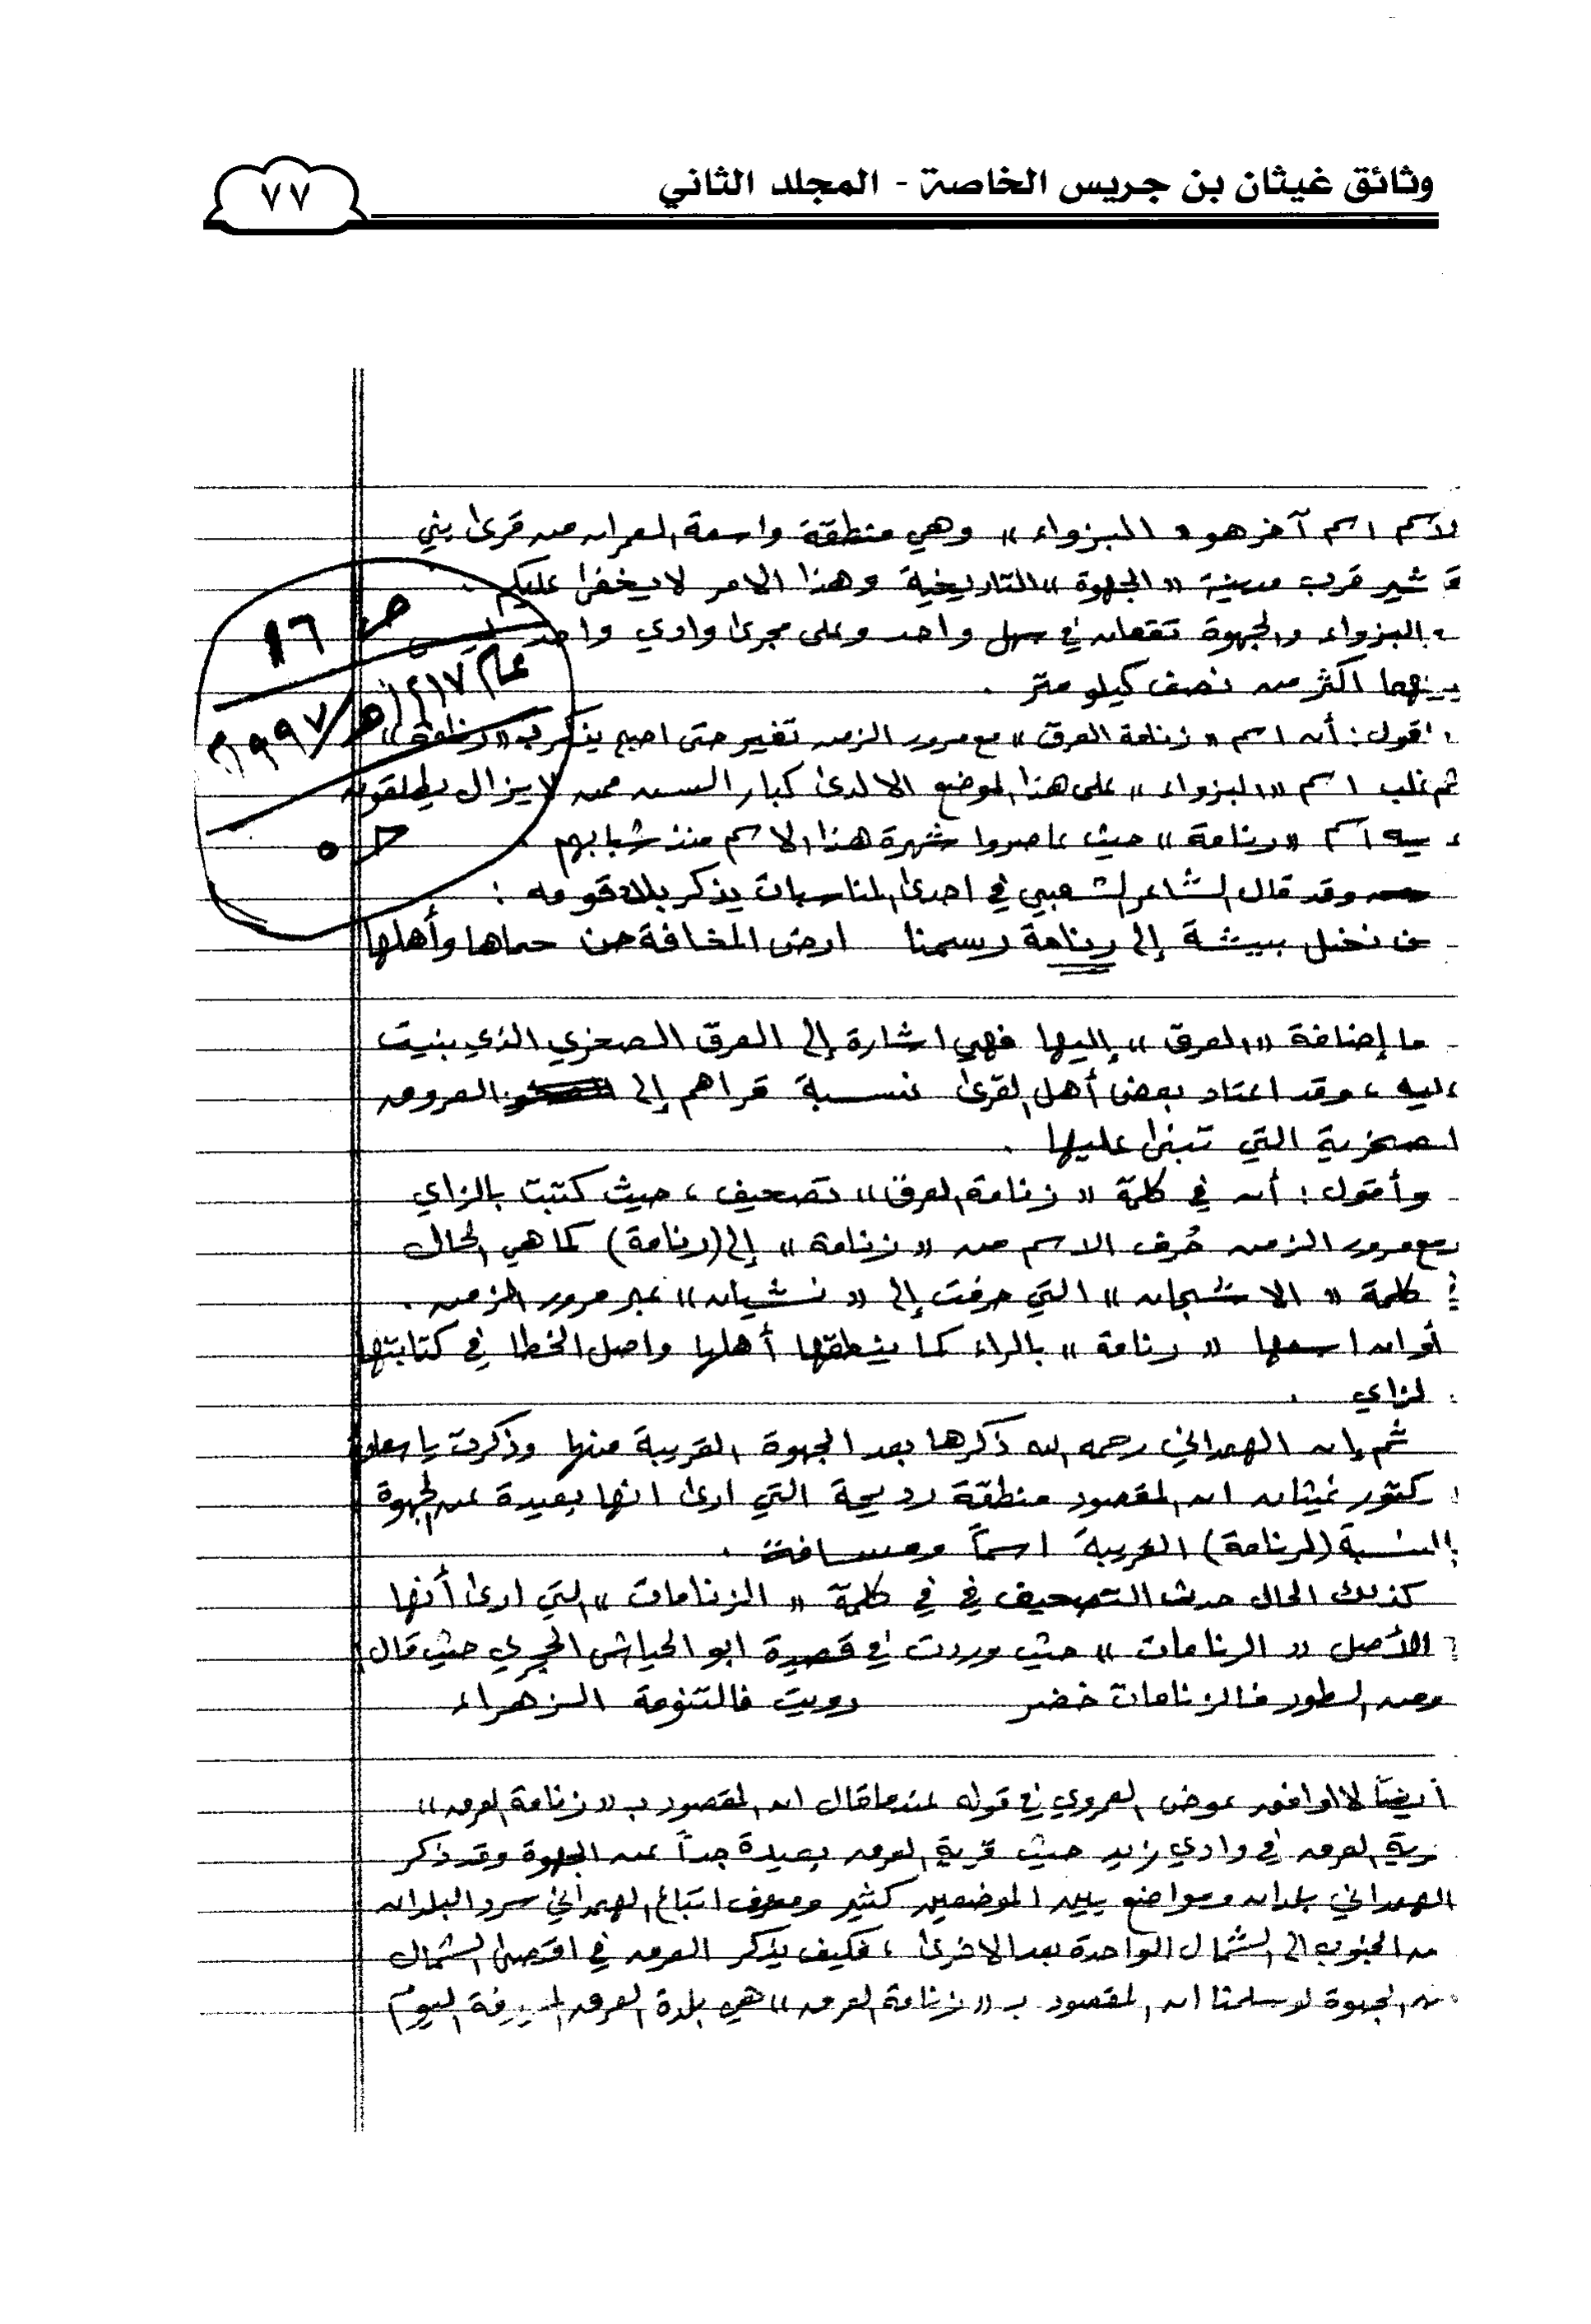 وثائق غيثان بن جريس الخاصة - المجلد الثاني
٧٧
لاسم اسم آخر هو « البزواء » وهي منطقة واسعة العمران من قرى بني
شير قرب مدينة « الجهوة » التاريخية وهذا الامر لا يخفى عليكم .
البزواء والجهوة تقعان في سهل واحد وعلى مجرى وادي واحد ليس
بينهما اكثر من نصف كيلو متر .
اقول : أن اسم « زنامة العرق » مع مرور الزمن تغير حتى اصبح يذكر بـ « رنامة »
ثم غلب اسم « البزواء » على هذا الموضع الا لدى كبار السن ممن لا يزال يطلقون
اسم « رنامة » حيث عاصروا شهرة هذا الاسم منذ شبابهم .
ص ١٦
عام ١٤١٧هـ/١٩٩٧م
ح ٥
وقد قال الشاعر الشعبي في احدى المناسبات يذكر بلاد قومه :
من نخل بيشة إلى رنامة رسمنا ارض المخافة من حماها وأهلها
ما إضافة « العرق » إليها فهي اشارة إلى العرق الصخري الذي بنيت
عليه ، وقد اعتاد بعض أهل القرى نسبة قراهم إلى العروق
الصخرية التي تبنى عليها .
وأقول : أن في كلمة « زنامة العرق » تصحيف ، حيث كتبت بالزاي
مع مرور الزمن حُرف الاسم من « زنامة » إلى (رنامة) كما هي الحال
كلمة « الاشجان » التي حرفت إلى « نشيان » عبر مرور الزمن .
أو ان اسمها « رنامة » بالراء كما ينطقها أهلها واصل الخطا في كتابتها
لزاي .
ثم إن الهمداني رحمه الله ذكرها بعد الجهوة القريبة منها وذكرت يا سعادة
كتور غيثان ان المقصود منطقة رديحة التي ارى انها بعيدة عن الجهوة
بالنسبة (لرنامة) القريبة اسماً ومسافة .
كذلك الحال حدث التصحيف في في كلمة « الزنامات » التي ارى أنها
الأصل « الرنامات » حيث وردت في قصيدة ابو الحياش الحجري حيث قال
ومن الطور فالزنامات خضر رويت فالتنومة الزهراء
أيضاً لا اوافق عوض العمروي في قوله عندما قال ان المقصود بـ « زنامة العرق »
رية العرق في وادي زيد حيث قرية العرق بعيدة جداً عن الجهوة وقد ذكر
الهمداني بلدان ومواضع بين الموضعين كثير ومعروف اتباع الهمداني سرد البلدان
من الجنوب الى الشمال الواحدة بعد الاخرى ، فكيف يذكر العرق في اقصى الشمال
من الجهوة لو سلمنا ان المقصود بـ « زنامة العرق » هي بلدة العرق المعروفة اليوم